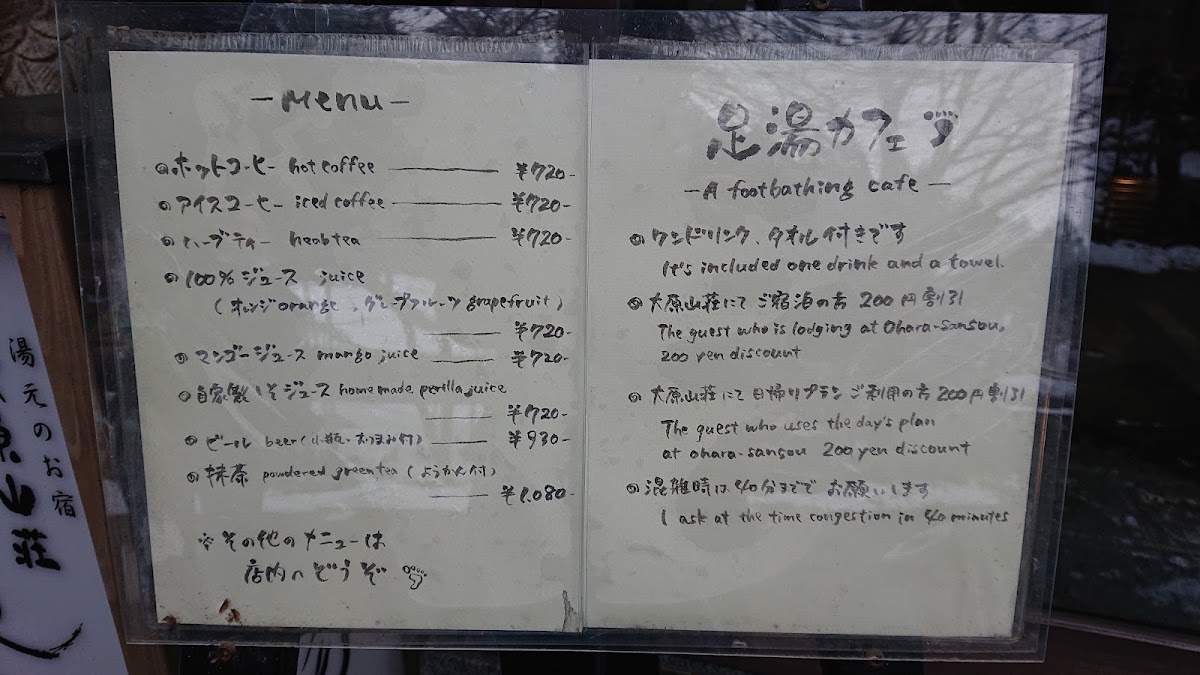 －Menu－
ホットコーヒー hot coffee ¥720-
アイスコーヒー iced coffee ¥720-
ハーブティー heabtea ¥720-
100%ジュース juice
(オレンジorange、グレープフルーツ grapefruit)
¥720-
マンゴージュース mango juice ¥720-
自家製しそジュース homemade perilla juice
¥720-
ビール beer(小瓶・おつまみ付) ¥930-
抹茶 powdered green tea (ようかん付)
¥1,080-
※その他のメニューは
店内へどうぞ
足湯カフェ
－A footbathing cafe－
ワンドリンク、タオル付きです
It's included one drink and a towel.
大原山荘にてご宿泊の方 200円割引
The guest who is lodging at Ohara-Sansou,
200 yen discount
大原山荘にて日帰りプランご利用の方 200円割引
The guest who uses the day's plan
at ohara-sansou 200 yen discount
混雑時は40分まででお願いします
I ask at the time congestion in 40 minutes
湯元のお宿
山荘